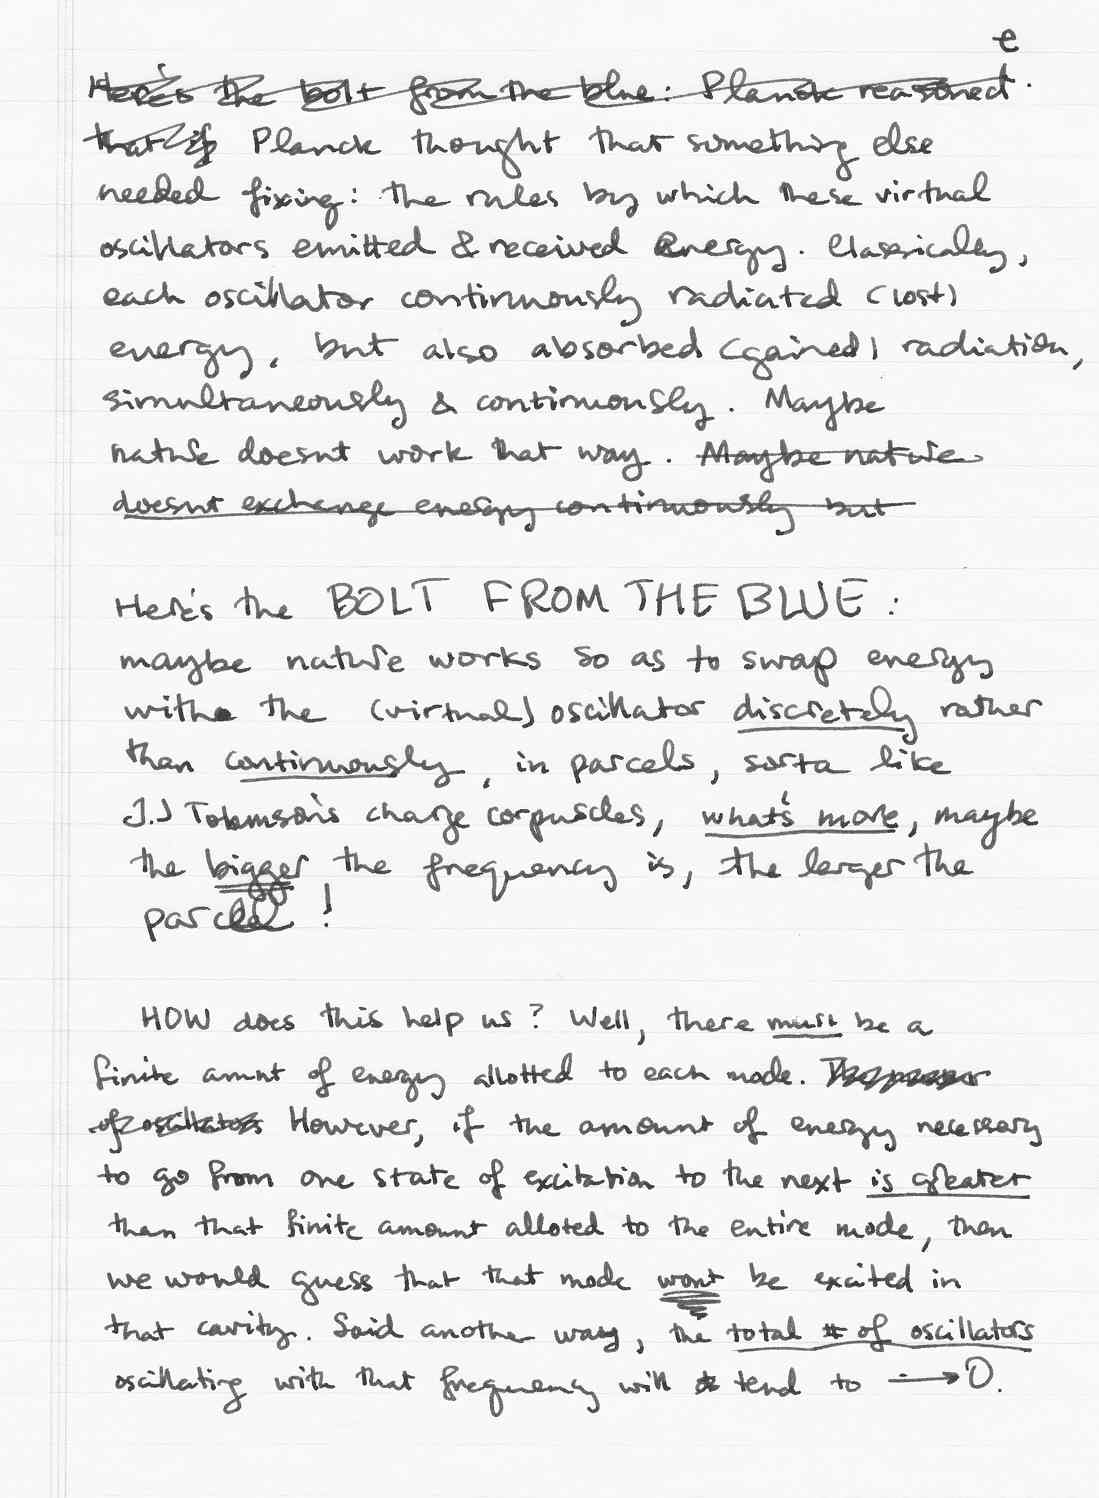 e
Here's the bolt from the blue: Planck reasoned.
that if Planck thought that something else
needed fixing: the rules by which these virtual
oscillators emitted & received energy. Classically,
each oscillator continuously radiated (lost)
energy, but also absorbed (gained) radiation,
simultaneously & continuously. Maybe
nature doesnt work that way. Maybe nature
doesnt exchange energy continuously but
Here's the BOLT FROM THE BLUE:
maybe nature works so as to swap energy
with the (virtual) oscillator discretely rather
than continuously, in parcels, sorta like
J.J Tohmson's charge corpuscles, what's more, maybe
the bigger the frequency is, the larger the
parcel!
HOW does this help us? Well, there must be a
finite amnt of energy allotted to each mode.
of oscillators However, if the amount of energy necessary
to go from one state of excitation to the next is greater
than that finite amount alloted to the entire mode, then
we would guess that that mode wont be excited in
that cavity. Said another way, the total # of oscillators
oscillating with that frequency will tend to → 0.